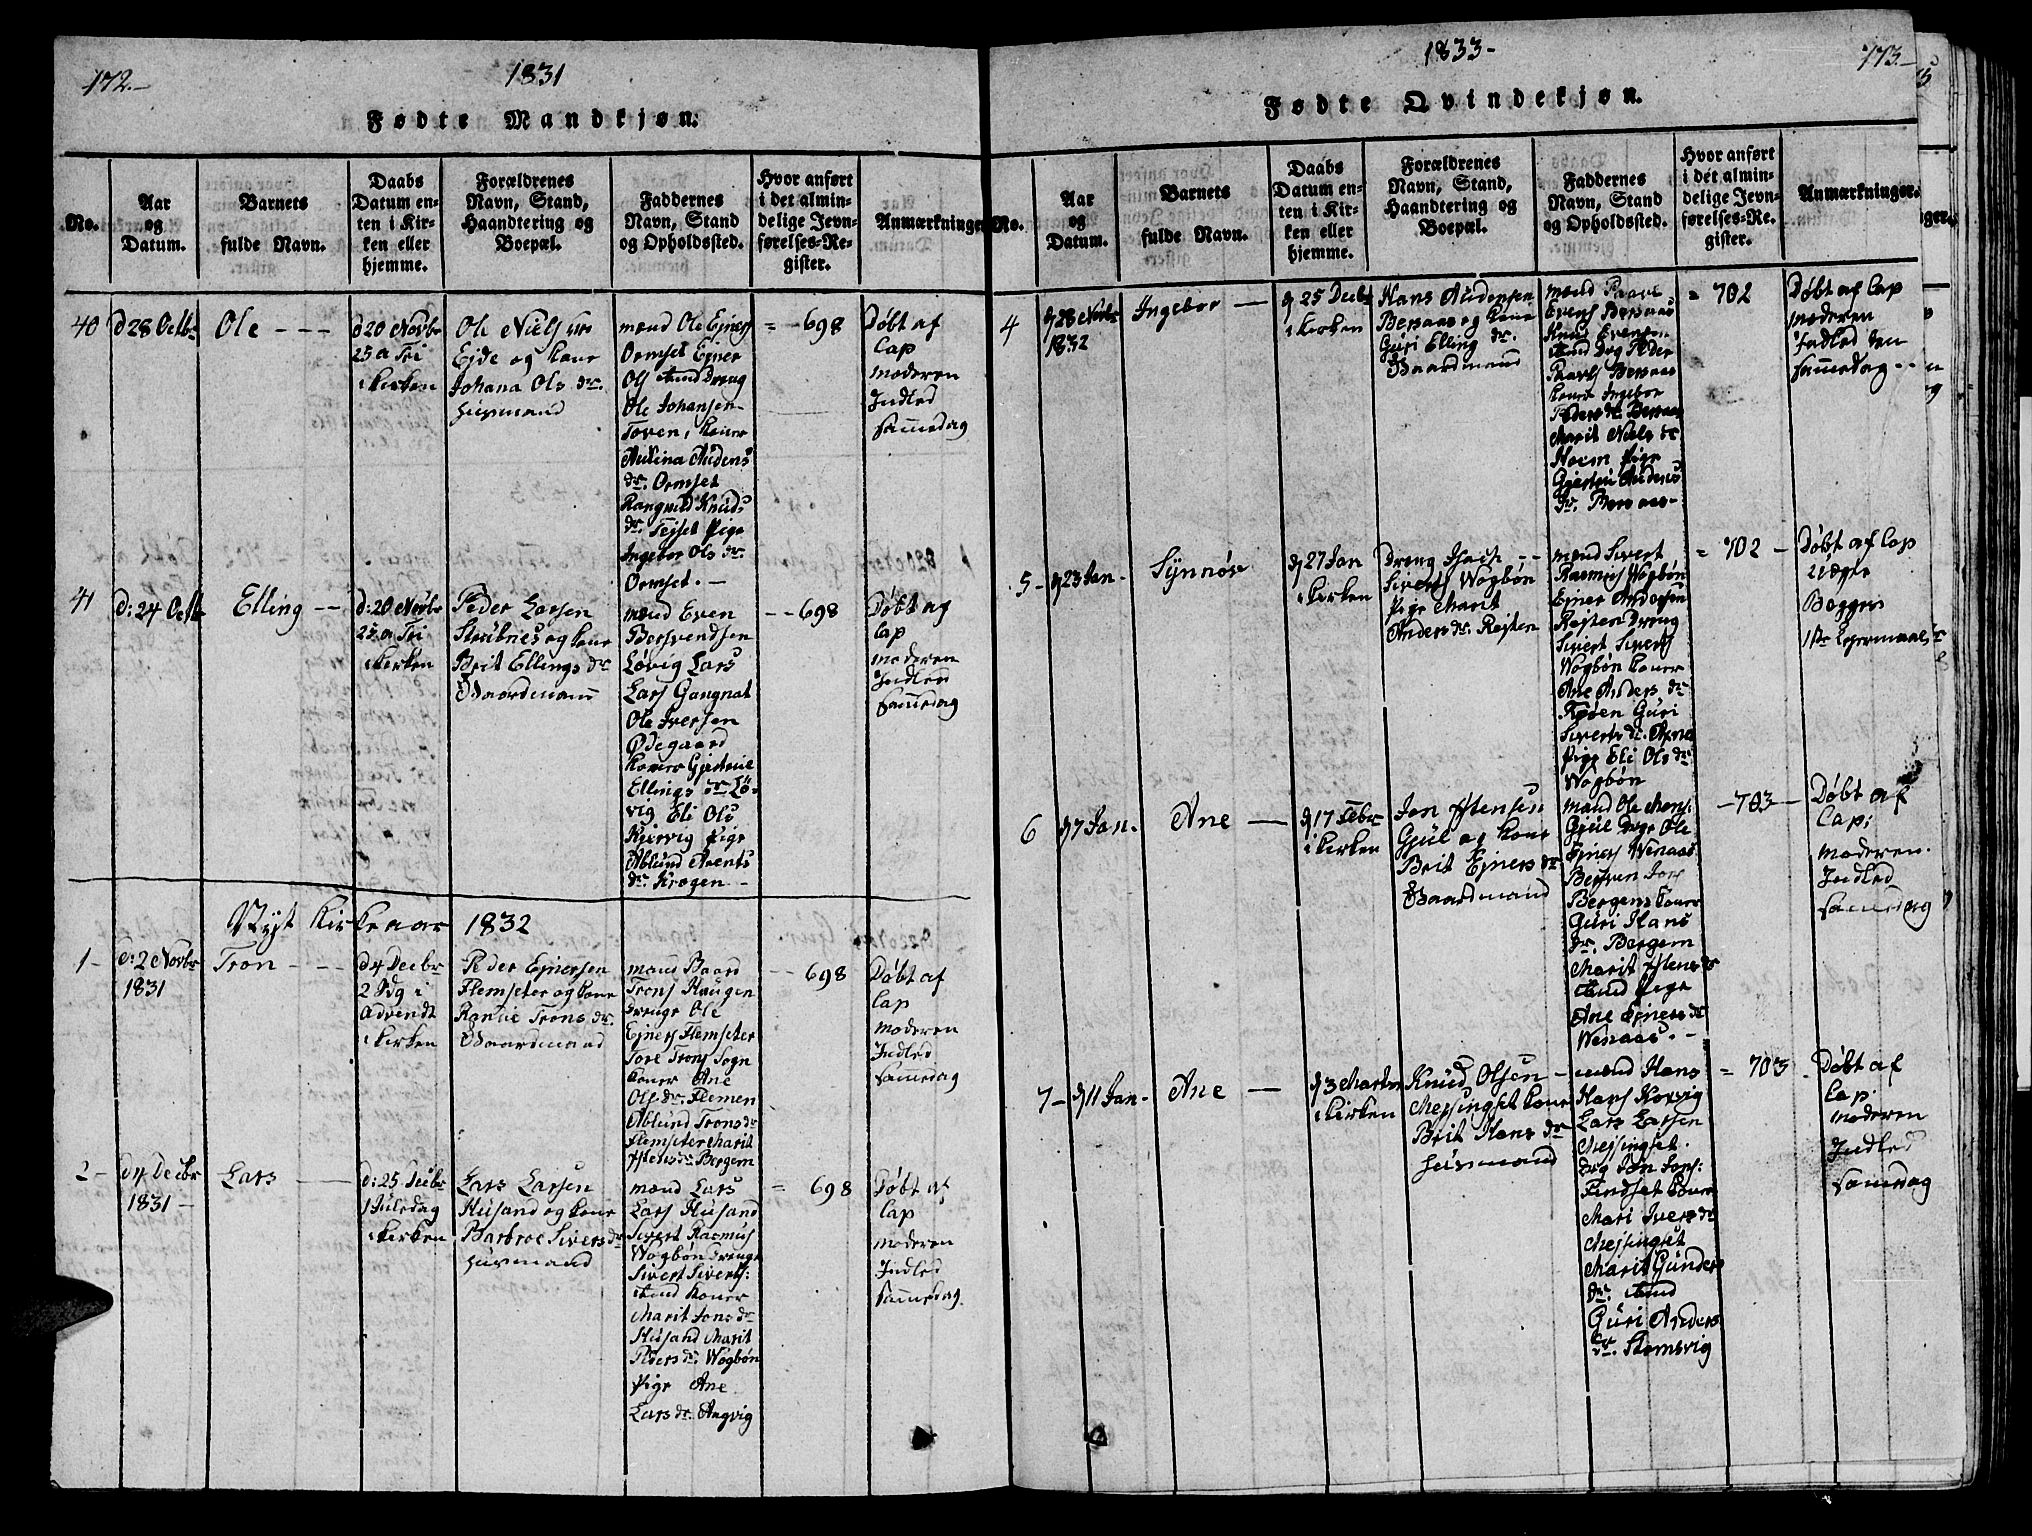 172.-
1831
Fødte Mandkjøn.
No.
Aar
og
Datum.
Barnets
fulde Navn.
Daabs
Datum en-
ten i Kir-
ken eller
hjemme.
Forældrenes
Navn, Stand,
Haandtering og
Boepæl.
Faddernes
Navn, Stand
og Opholdssted.
Hvor anført
i det almin-
delige Jevn-
førelses-Re-
gister.
Anmærkninger
40
d 28 Octbr
Ole
d 20 Novbr
25 a Tri
i kirken
Ole Nielsen
Ejde og kone
Johana Ols dr.
Husmand
mænd Ole Ejners
Ormset Ejner
Ols Aund Dreng
Ole Johansen
Toven, koner
Aulina Audens
dr. Ormset
Rangnild Knuds
dr. Tejset Pige
Ingebor Ols dr.
Ormset. -
= 698
Døbt af
Cap
moderen
Indled
samedag
41
d: 24 Octb
Elling
d: 20 Novbr
25 a Tri
i kirken
Peder Larsen
Strubnes og kone
Brit Ellings dr
Gaardmand
mænd Even
Bersvendsen
Løvig Lars
Lars Gangnat
Ole Iversen
Ødegaard
koner Gjertrue
Ellings dr Lø-
vig Eli Ols
Kjervig Pige
Ablund Arents
dr. Krogen -
-- 698
Døbt af
Cap
moderen
Indled
samedag
Nyt Kirkeaar 1832
1 -
d: 2 Novbr
1831
Tron
d 4 Decbr
2 Sdg i
Advendt
i kirken
Peder Ejnersen
Flemseter og kone
Ranue Trons dr.
Gaardmand
mænd Baard
Trons Haugen
Drenge Ole
Ejners Flemseter
Tore Trons Sogn
koner Ane
Ols dr. Flemen
Ablund Trons dr
Flemseter Marit
Istens dr Bergem
-- 698
Døbt af
Cap
moderen
Indled
samedag
2 -
d 4 Decbr
1831 -
Lars
d: 25 Decbr
1 Juledag
i kirken
Lars Larsen
Husand og kone
Barbroe Sivers dr
Husmand
mænd Lars
Lars Husand
Sivert Rasmus
Wogbøn Drenge
Sivert Siverts:
Aund koner
Marit Jons dr
Husand Marit
Peders dr. Wogbøn
Pige Ane
Lars dr. Angvig
= 698
Døbt af
Cap
moderen
Indled
samedag.
1833-
173.-
Fødte Qvindekjøn.
No.
Aar
og
Datum.
Barnets
fulde Navn.
Daabs
Datum en-
ten i Kir-
ken eller
hjemme.
Forældrenes
Navn, Stand,
Haandtering og
Boepæl.
Faddernes
Navn, Stand
og Opholdssted.
Hvor anført
i det almin-
delige Jevn-
førelses-Re-
gister.
Anmærkninger.
4
d 28 Novbr
1832
Ingebor
d 25 Decbr
i kirken
Hans Audensen
Bersaas og kone
Guri Elling dr.
Gaardmand
mænd Paavel
Evens Bersaas
Knud Evensen
Aund Drg Peder
Paavels Bersaas
koner Ingebor
Peders dr Bersaas
Marit Niels dr
Hoem Pige
Gjertru Audens
dr. Bersaas -
= 702
Døbt af Cap
moderen
Indled den
samedag -
5 -
d 23 Jan.
Synnøv
d 27 Jan
i kirken
Dreng Isach
Siverts Wogbøn
Pige Marit
Anders dr. Rejten
mænd Sivert
Rasmus Wogbøn
Ejner Andersen
Rejten Dreng
Sivert Siverts
Wogbøn koner
Ane Anders dr
Taøen Guri
Siverts dr.
Pige Eli Ols dr
Wogbøn
= 702 -
Døbt af Cap
Uægte
Begges
1ste Lejermaal
6
d 7 Jan.
Ane
d 17 Febr
i kirken
Jon Istensen
Gjul og kone
Brit Ejners dr
Gaardmand
mænd Ole Mons:
Gjul Drge Ole
Ejners Wenaas
Bersven Jors
Bergem koner
Guri Hans
dr. Bergem
Marit Istens dr
Aund Pige
Ane Ejners dr
Wenaas. -
-703-
Døbt af
Cap:
moderen.
Indled
samedag
7 -
d 11 Jan.
Ane
d 3 Marts
i kirken
Knud Olsen
Messingset kone
Brit Hans dr
Husmand
mænd Hans
Hans Korvig
Lars Larsen
Messingset.
Drg Jon Jons:
Findset koner
Mari Ivers dr
Messingset
Marit Gunders
dr. Aund
Guri Anders
dr. Stomsvig
= 703
Døbt af
Cap
moderen
Indled
samedag